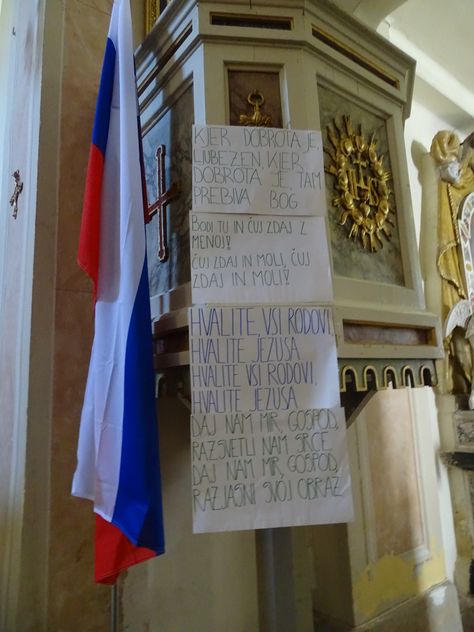 KJER DOBROTA JE,
LJUBEZEN KJER
DOBROTA JE, TAM
PREBIVA BOG
BODI TU IN ČUJ ZDAJ Z
MENOJ!
ČUJ ZDAJ IN MOLI, ČUJ
ZDAJ IN MOLI!
HVALITE, VSI RODOVI,
HVALITE JEZUSA
HVALITE VSI RODOVI,
HVALITE JEZUSA
DAJ NAM MIR, GOSPOD,
RAZSVETLI NAM SRCE
DAJ NAM MIR, GOSPOD,
RAZJASNI SVOJ OBRAZ
IHS